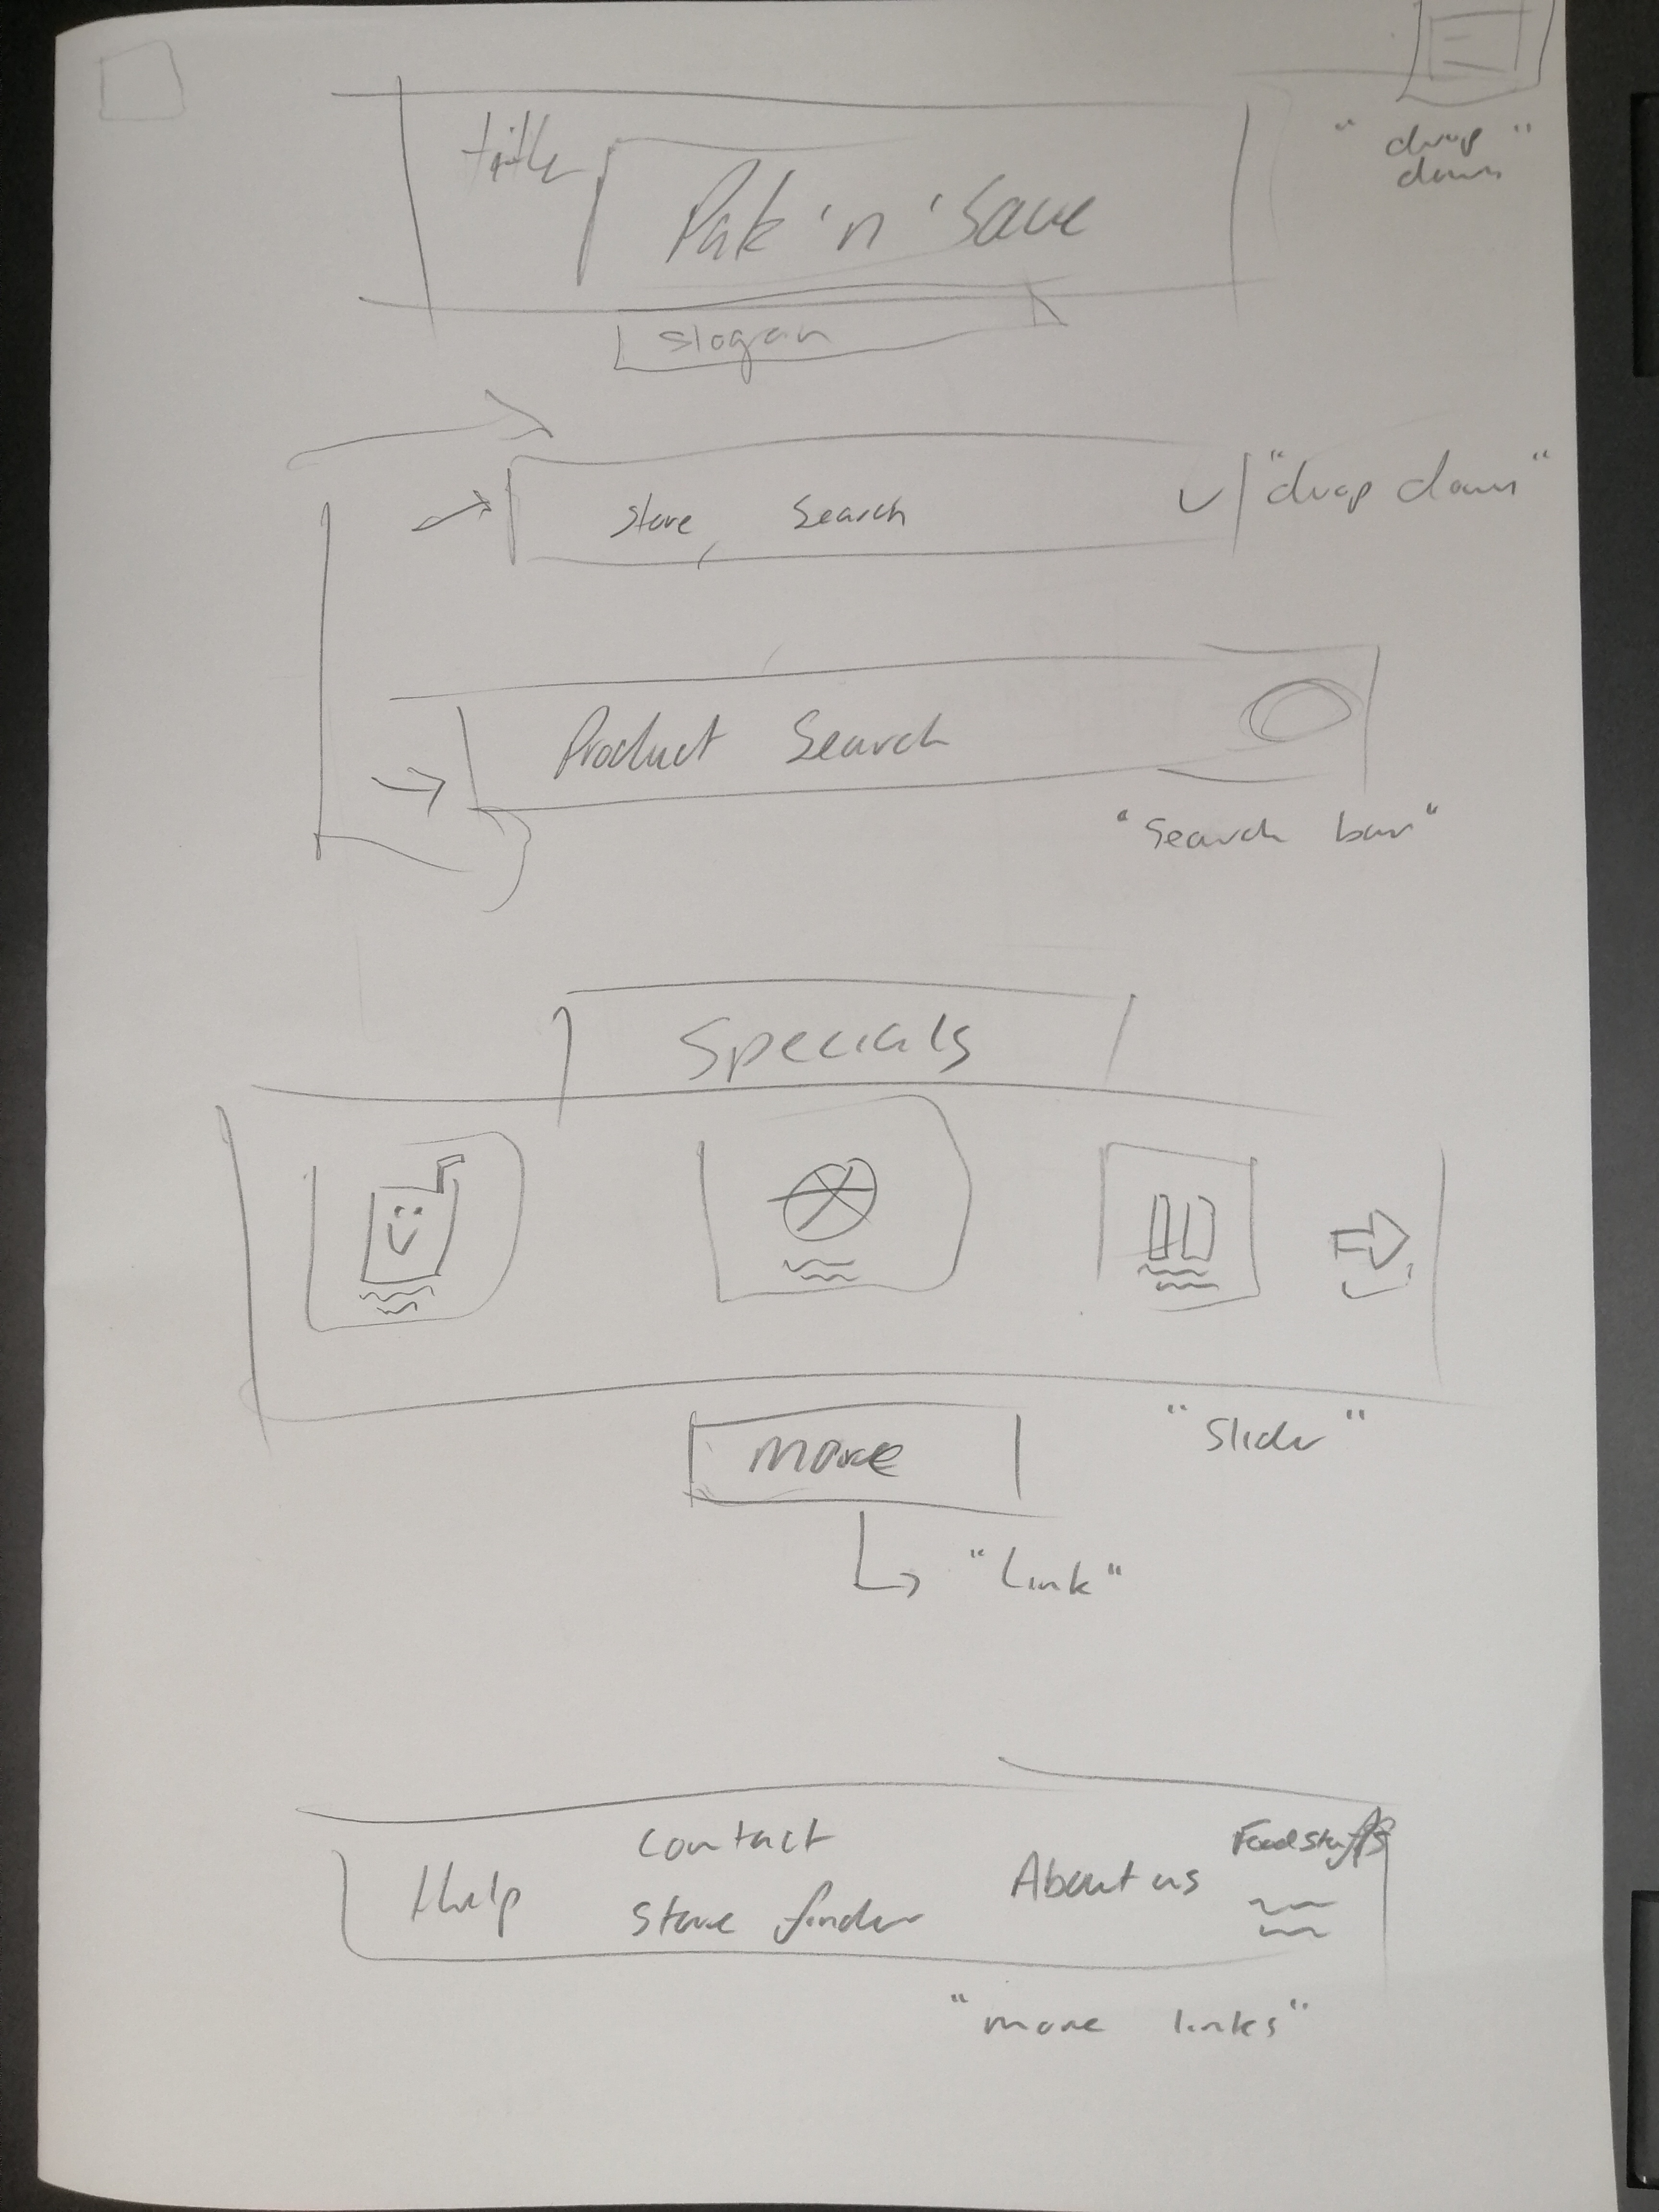 title
Pak 'n' Save
"drop
down"
slogan
store search
"drop down"
Product Search
"Search bar"
Specials
"Slider"
more
"Link"
Help
contact
store finder
About us
Foodstuffs
"more links"